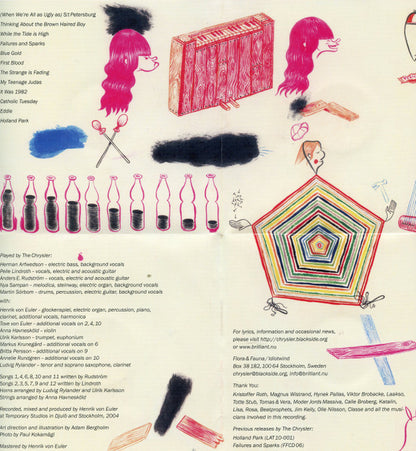 (When We're All as Ugly as) St Petersburg
Thinking About the Brown Haired Boy
While the Tide is High
Failures and Sparks
Blue Gold
First Blood
The Strange is Fading
My Teenage Judas
It Was 1982
Catholic Tuesday
Eddie
Holland Park
Played by The Chrysler:
Herman Arfwedson - electric bass, background vocals
Pelle Lindroth - vocals, electric and acoustic guitar
Anders E. Rudström - vocals, electric and acoustic guitar
Nya Sampan - melodica, steelway, electric organ, background vocals
Martin Sörbom - drums, percussion, electric guitar, background vocals
with:
Henrik von Euler - glockenspiel, electric organ, percussion, piano,
clarinet, additional vocals, harmonica
Tove von Euler - additional vocals on 2, 4, 10
Anna Havnesköld - violin
Ulrik Karlsson - trumpet, euphonium
Markus Krunegård - additional vocals on 6
Britta Persson - additional vocals on 9
Amelie Rundgren - additional vocals on 10
Ludvig Rylander - tenor and soprano saxophone, clarinet
Songs 1, 4, 6, 8, 10 and 11 written by Rudström
Songs 2, 3, 5, 7, 9 and 12 written by Lindroth
Horns arranged by Ludvig Rylander and Ulrik Karlsson
Strings arranged by Anna Havnesköld
Recorded, mixed and produced by Henrik von Euler
at Temporary Studios in Djulö and Stockholm, 2004
Art direction and illustration by Adam Bergholm
Photo by Paul Kokamägi
Mastered by Henrik von Euler
For lyrics, information and occasional news,
please visit http://chrysler.blackside.org
or www.brilliant.nu
Flora & Fauna / Idiotwind
Box 38 182, 100 64 Stockholm, Sweden
chrysler@blackside.org, info@brilliant.nu
Thank You:
Kristoffer Roth, Magnus Wistrand, Hynek Pallas, Viktor Brobacke, Laakso,
Totte Stub, Tomas & Vera, Moder Jords Massiva, Calle Broberg, Katalin,
Lisa, Rosa, Beatprophets, Jim Kelly, Olle Nilsson, Classe and all the musi-
cians involved in this recording.
Previous releases by The Chrysler:
Holland Park (LAT 10-001)
Failures and Sparks (FFCD 06)